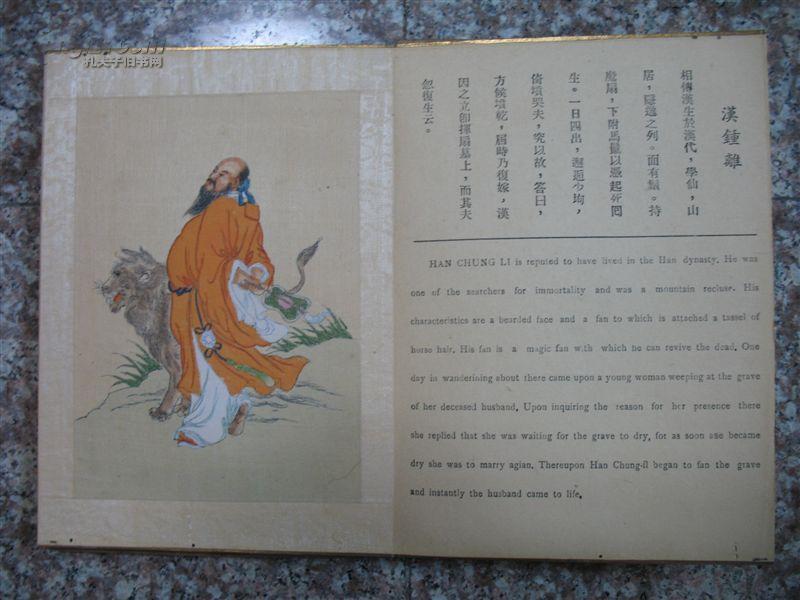 孔夫子旧书网
漢鍾離
相傳漢生於漢代，學仙，山
居，隱逸之列。面有鬚。持
麈扇，下附馬鬣以憑起死囘
生。一日閒出，邂逅少婦，
倚墳哭夫，究以故，答曰，
方候墳乾，屆時乃復嫁，漢
因之立卽揮扇墓上，而其夫
忽復生云。
HAN CHUNG LI is reputed to have lived in the Han dynasty. He was
one of the searchers for immortality and was a mountain recluse. His
characteristics are a bearded face and a fan to which is attached a tassel of
horse hair. His fan is a magic fan with which he can revive the dead. One
day in wanderining about there came upon a young woman weeping at the grave
of her deceased husband. Upon inquiring the reason for her presence there
she replied that she was waiting for the grave to dry, for as soon ase became
dry she was to marry agian. Thereupon Han Chung-li began to fan the grave
and instantly the husband came to life.